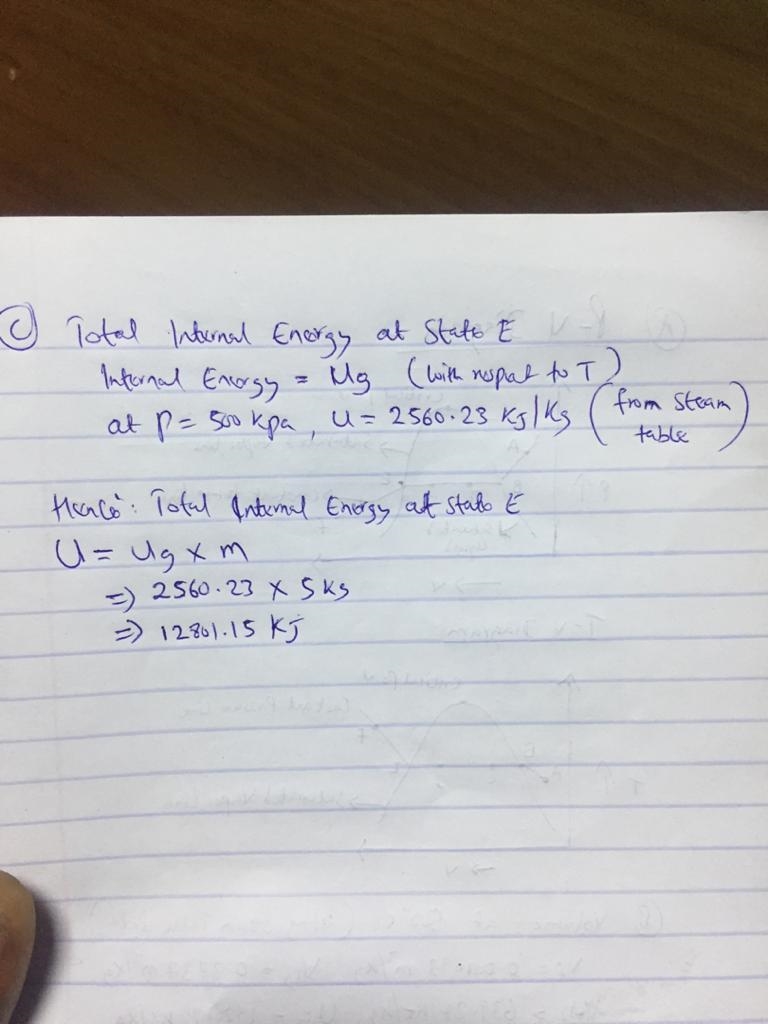 C Total Internal Energy at State E
Internal Energy = Ug (with respect to T)
at P = 500 kpa, U = 2560.23 KJ/Kg (from steam table)
Hence: Total Internal Energy at State E
U = Ug x m
=> 2560.23 x 5 Kg
=> 12801.15 KJ